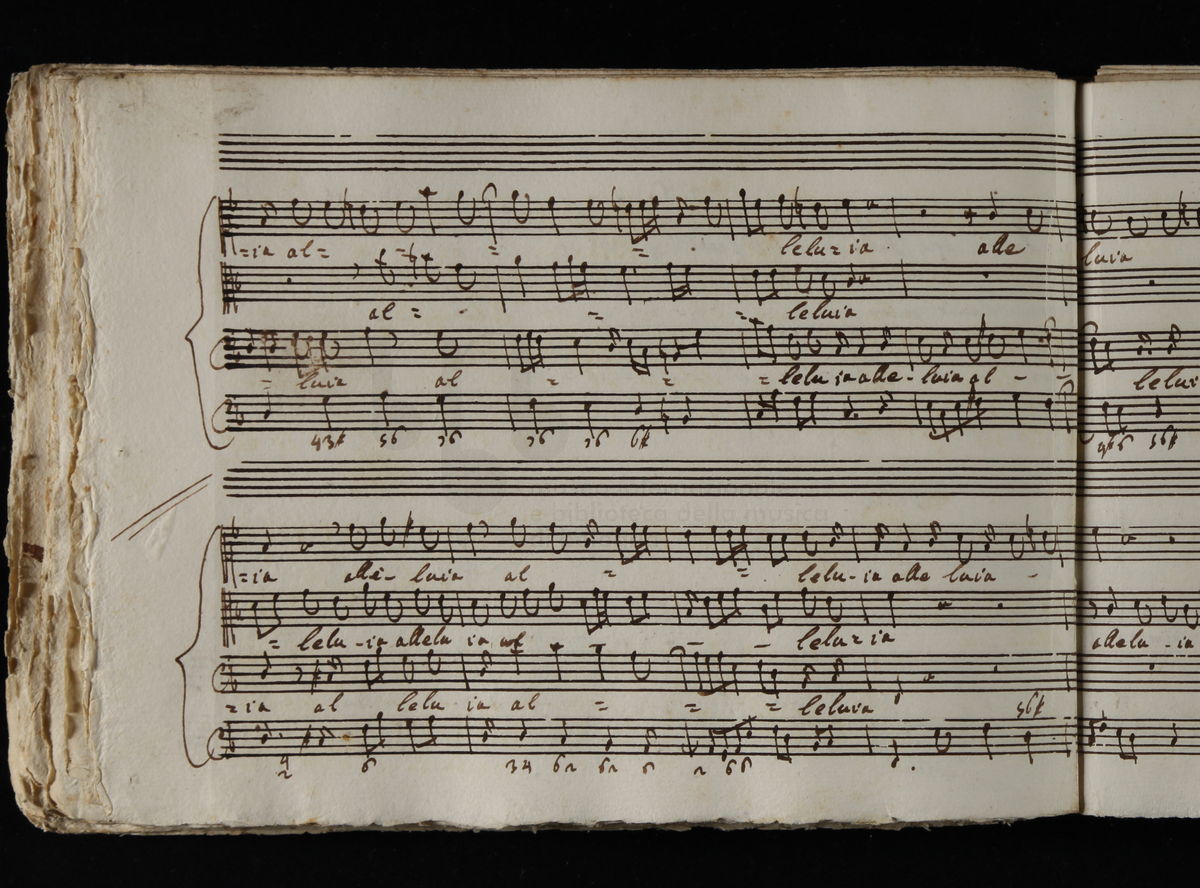 =ia al= = = = lelu=ia alle luia
al = - = = leluia
= luia al = = = lelu ia alle - luia al - = lelui
43# 56 76 76 76 6#
=ia alle- luia al = = lelu-ia alle luia -
= lelu-ia allelu ia al - - lelu=ia allelu-ia
=ia al lelu ia al = = = leluia 56#
4 2 6 34 6 6 2 66
e biblioteca della musica